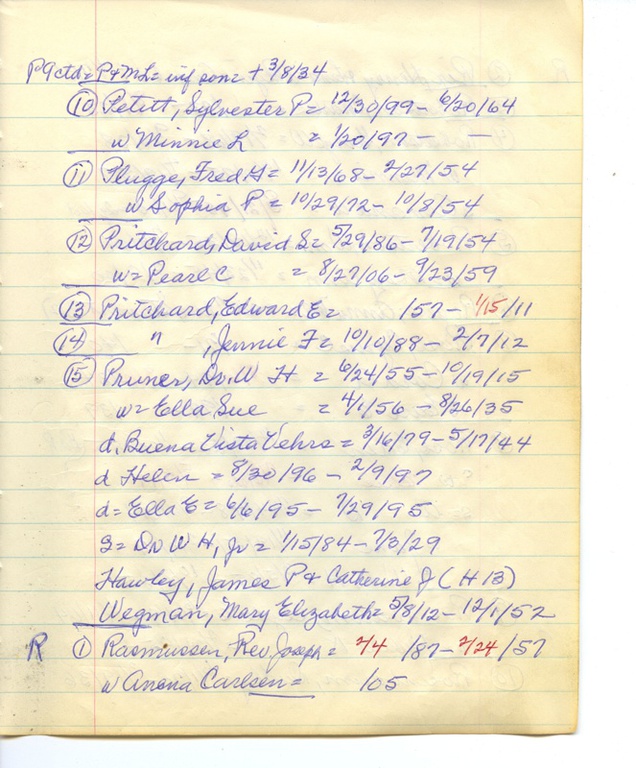 P9 ctd = P + M L = inf son = + 3/8/34
⑩ Petitt, Sylvester P = 12/30/99 - 6/20/64
w Minnie L = 1/20/97 - -
⑪ Plugge, Fred H = 11/13/68 - 2/27/54
w Sophia P = 10/29/72 - 10/8/54
⑫ Pritchard, David S = 5/29/86 - 7/19/54
w = Pearl C = 8/27/06 - 9/23/59
⑬ Pritchard, Edward E = /57 - 1/15/11
⑭ " , Jennie F = 10/10/88 - 2/7/12
⑮ Pruner, Dr. W H = 6/24/55 - 10/19/15
w = Ella Sue = 4/1/56 - 8/26/35
d. Buena Vista Vehrs = 3/16/79 - 5/17/44
d Helen = 8/30/96 - 2/9/97
d = Ella E = 6/6/95 - 7/29/95
S = Dr W H, Jr = 1/15/84 - 7/3/29
Hawley, James P + Catherine J (H 13)
Wegman, Mary Elizabeth = 5/8/12 - 12/1/52
R ① Rasmussen, Rev. Joseph = 2/4 /87 - 2/24 /57
w Anena Carlsen = /05